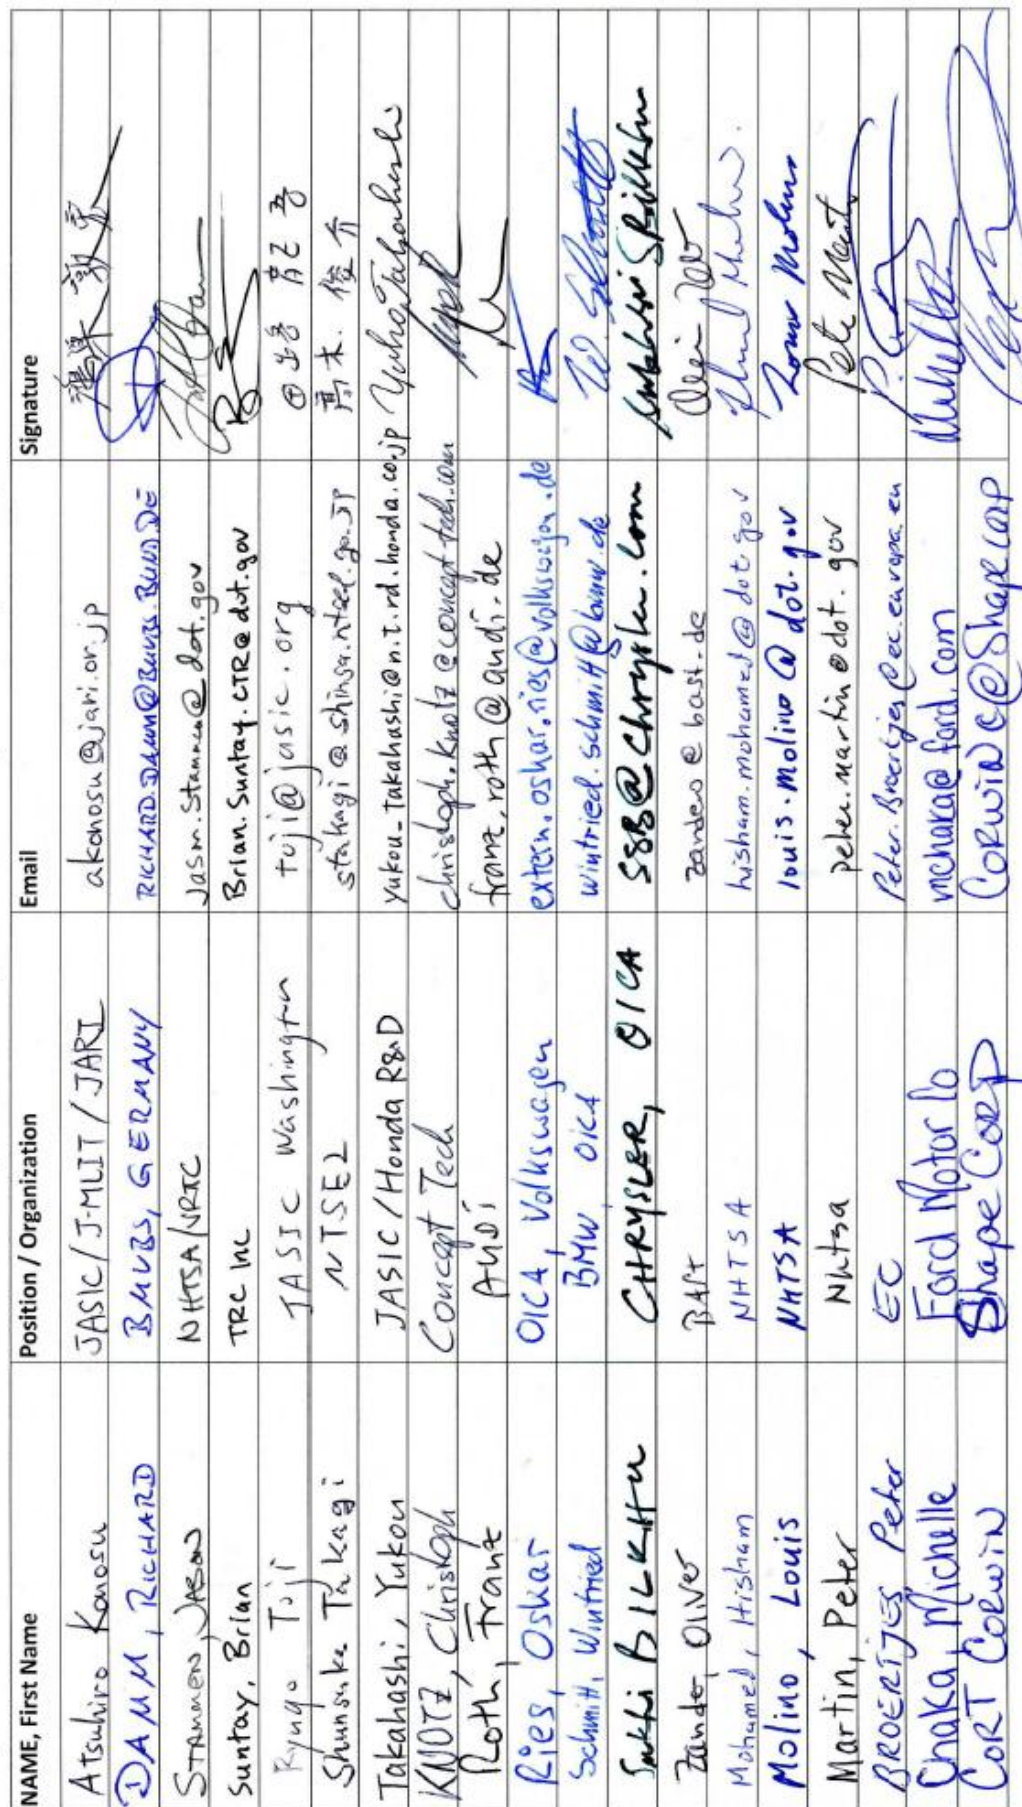 NAME, First Name Position / Organization Email Signature
Atsuhiro Konosu JASIC/J-MLIT/JARI akonosu@jari.or.jp
DAMM, RICHARD BMVBS, GERMANY RICHARD.DAMM@BMVBS.BUND.DE
STAMMEN, JASON NHTSA/VRTC Jason.Stammen@dot.gov
Suntay, Brian TRC Inc Brian.Suntay.CTR@dot.gov
Ryugo Toji JASIC Washington toji@jasic.org
Shunsuke Takagi NTSEL stakagi@shinsa.ntsel.go.jp 高木 俊介
Takahashi, Yukou JASIC/Honda R&D yukou_takahashi@n.t.rd.honda.co.jp Yukou Takahashi
KNOTZ, Christoph Concept Tech christoph.knotz@concept-tech.com
Roth, Franz AUDi franz.roth@audi.de
Ries, Oskar OICA, Volkswagen extern.oskar.ries@volkswagen.de
Schmitt, Winfried BMW, OICA winfried.schmitt@bmw.de W. Schmitt
Sukhbir BILKHU CHRYSLER, OICA SSB@Chrysler.com Sukhbir S Bilkhu
Zander, Oliver BASt zander@bast.de
Mohamed, Hisham NHTSA hisham.mohamed@dot.gov
Molino, Louis NHTSA louis.molino@dot.gov Louis Molino
Martin, Peter Nhtsa peter.martin@dot.gov Peter Martin
BROERTJES Peter EC Peter.Broertjes@ec.europa.eu
Chaka, Michelle Ford Motor Co mchaka@ford.com
CORT CORWIN Shape CORP CORWINC@Shapecorp